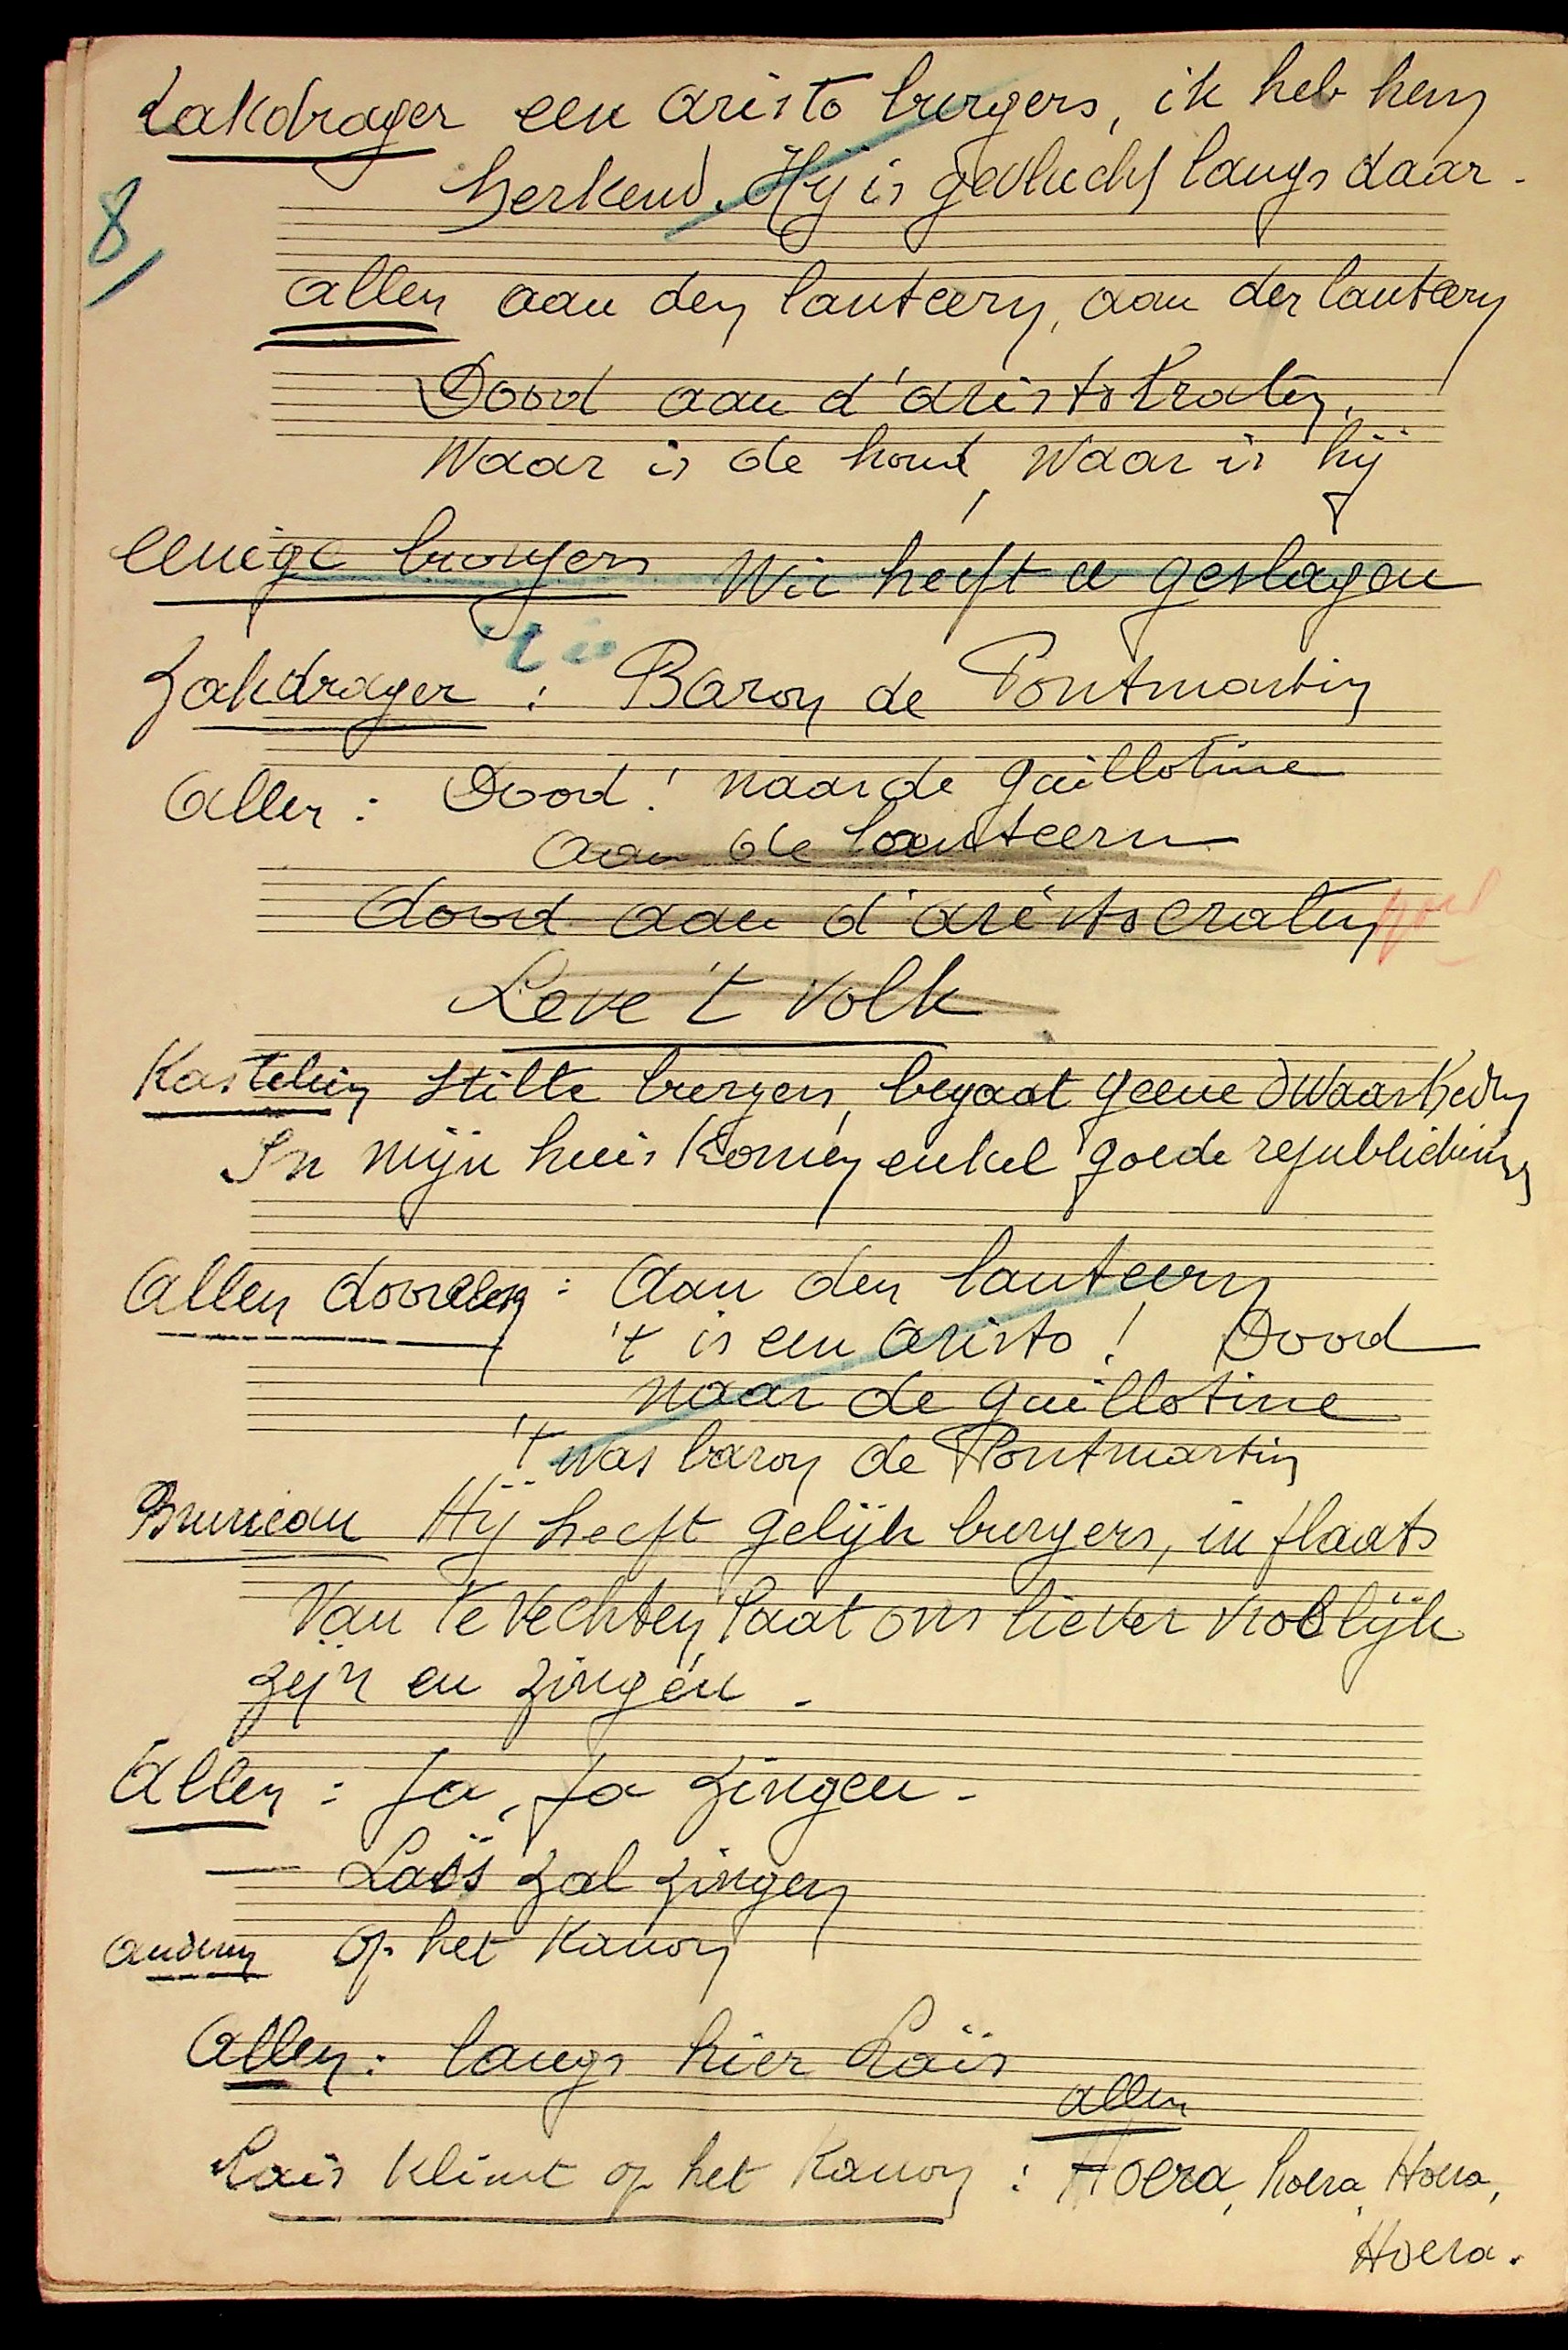 Zakdrager een aristo burgers, ik heb hem
herkend. Hij is gevlucht langs daar.
8/
allen aan den lanteern, aan den lanteern
Dood aan d'aristokraten.
Waar is de hond, waar is hij
eenige burgers Wie heeft u geslagen
't is
Zakdrager : Baron de Pontmartin
Allen : Dood! naar de guillotine
aan de lanteern
dood aan d'aristocraten
Leve 't volk
Kastelein stilte burgers, begaat geene dwaasheden
In mijn huis komen enkel goede republicheinen
Allen dooreen : Aan den lanteern
't is een aristo! Dood
naar de guillotine
't was baron de Pontmartin
Bruneau Hij heeft gelijk burgers, in plaats
van te vechten laat ons liever vrolijk
zijn en zingen.
Allen : Ja, Ja zingen -
— Laïs zal zingen
anderen op het kanon
Allen : langs hier Laïs
allen
Laïs klimt op het kanon : Hoera, hoera, Hoera,
Hoera.